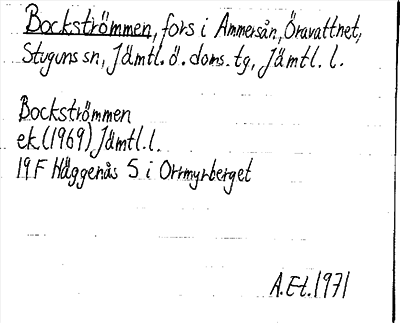 Bockströmmen, fors i Ammerån, Öravattnet,
Stuguns sn, Jämtl. ö. doms. tg, Jämtl. l.
Bockströmmen
ek. (1969) Jämtl. l.
19 F Häggenås S i Orrmyrberget
A. E-t. 1971